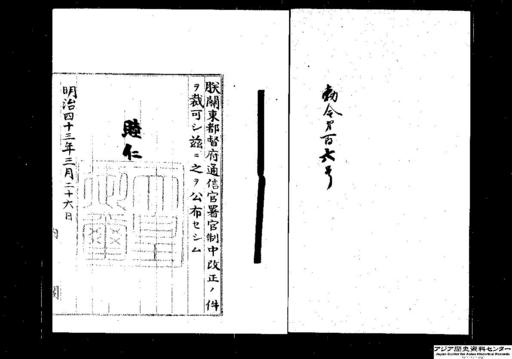 勅令第百六号
朕關東都督府通信官署官制中改正ノ件
ヲ裁可シ茲ニ之ヲ公布セシム
睦仁
天皇御璽
明治四十三年三月二十六日
内閣
アジア歴史資料センター
Japan Center for Asian Historical Records